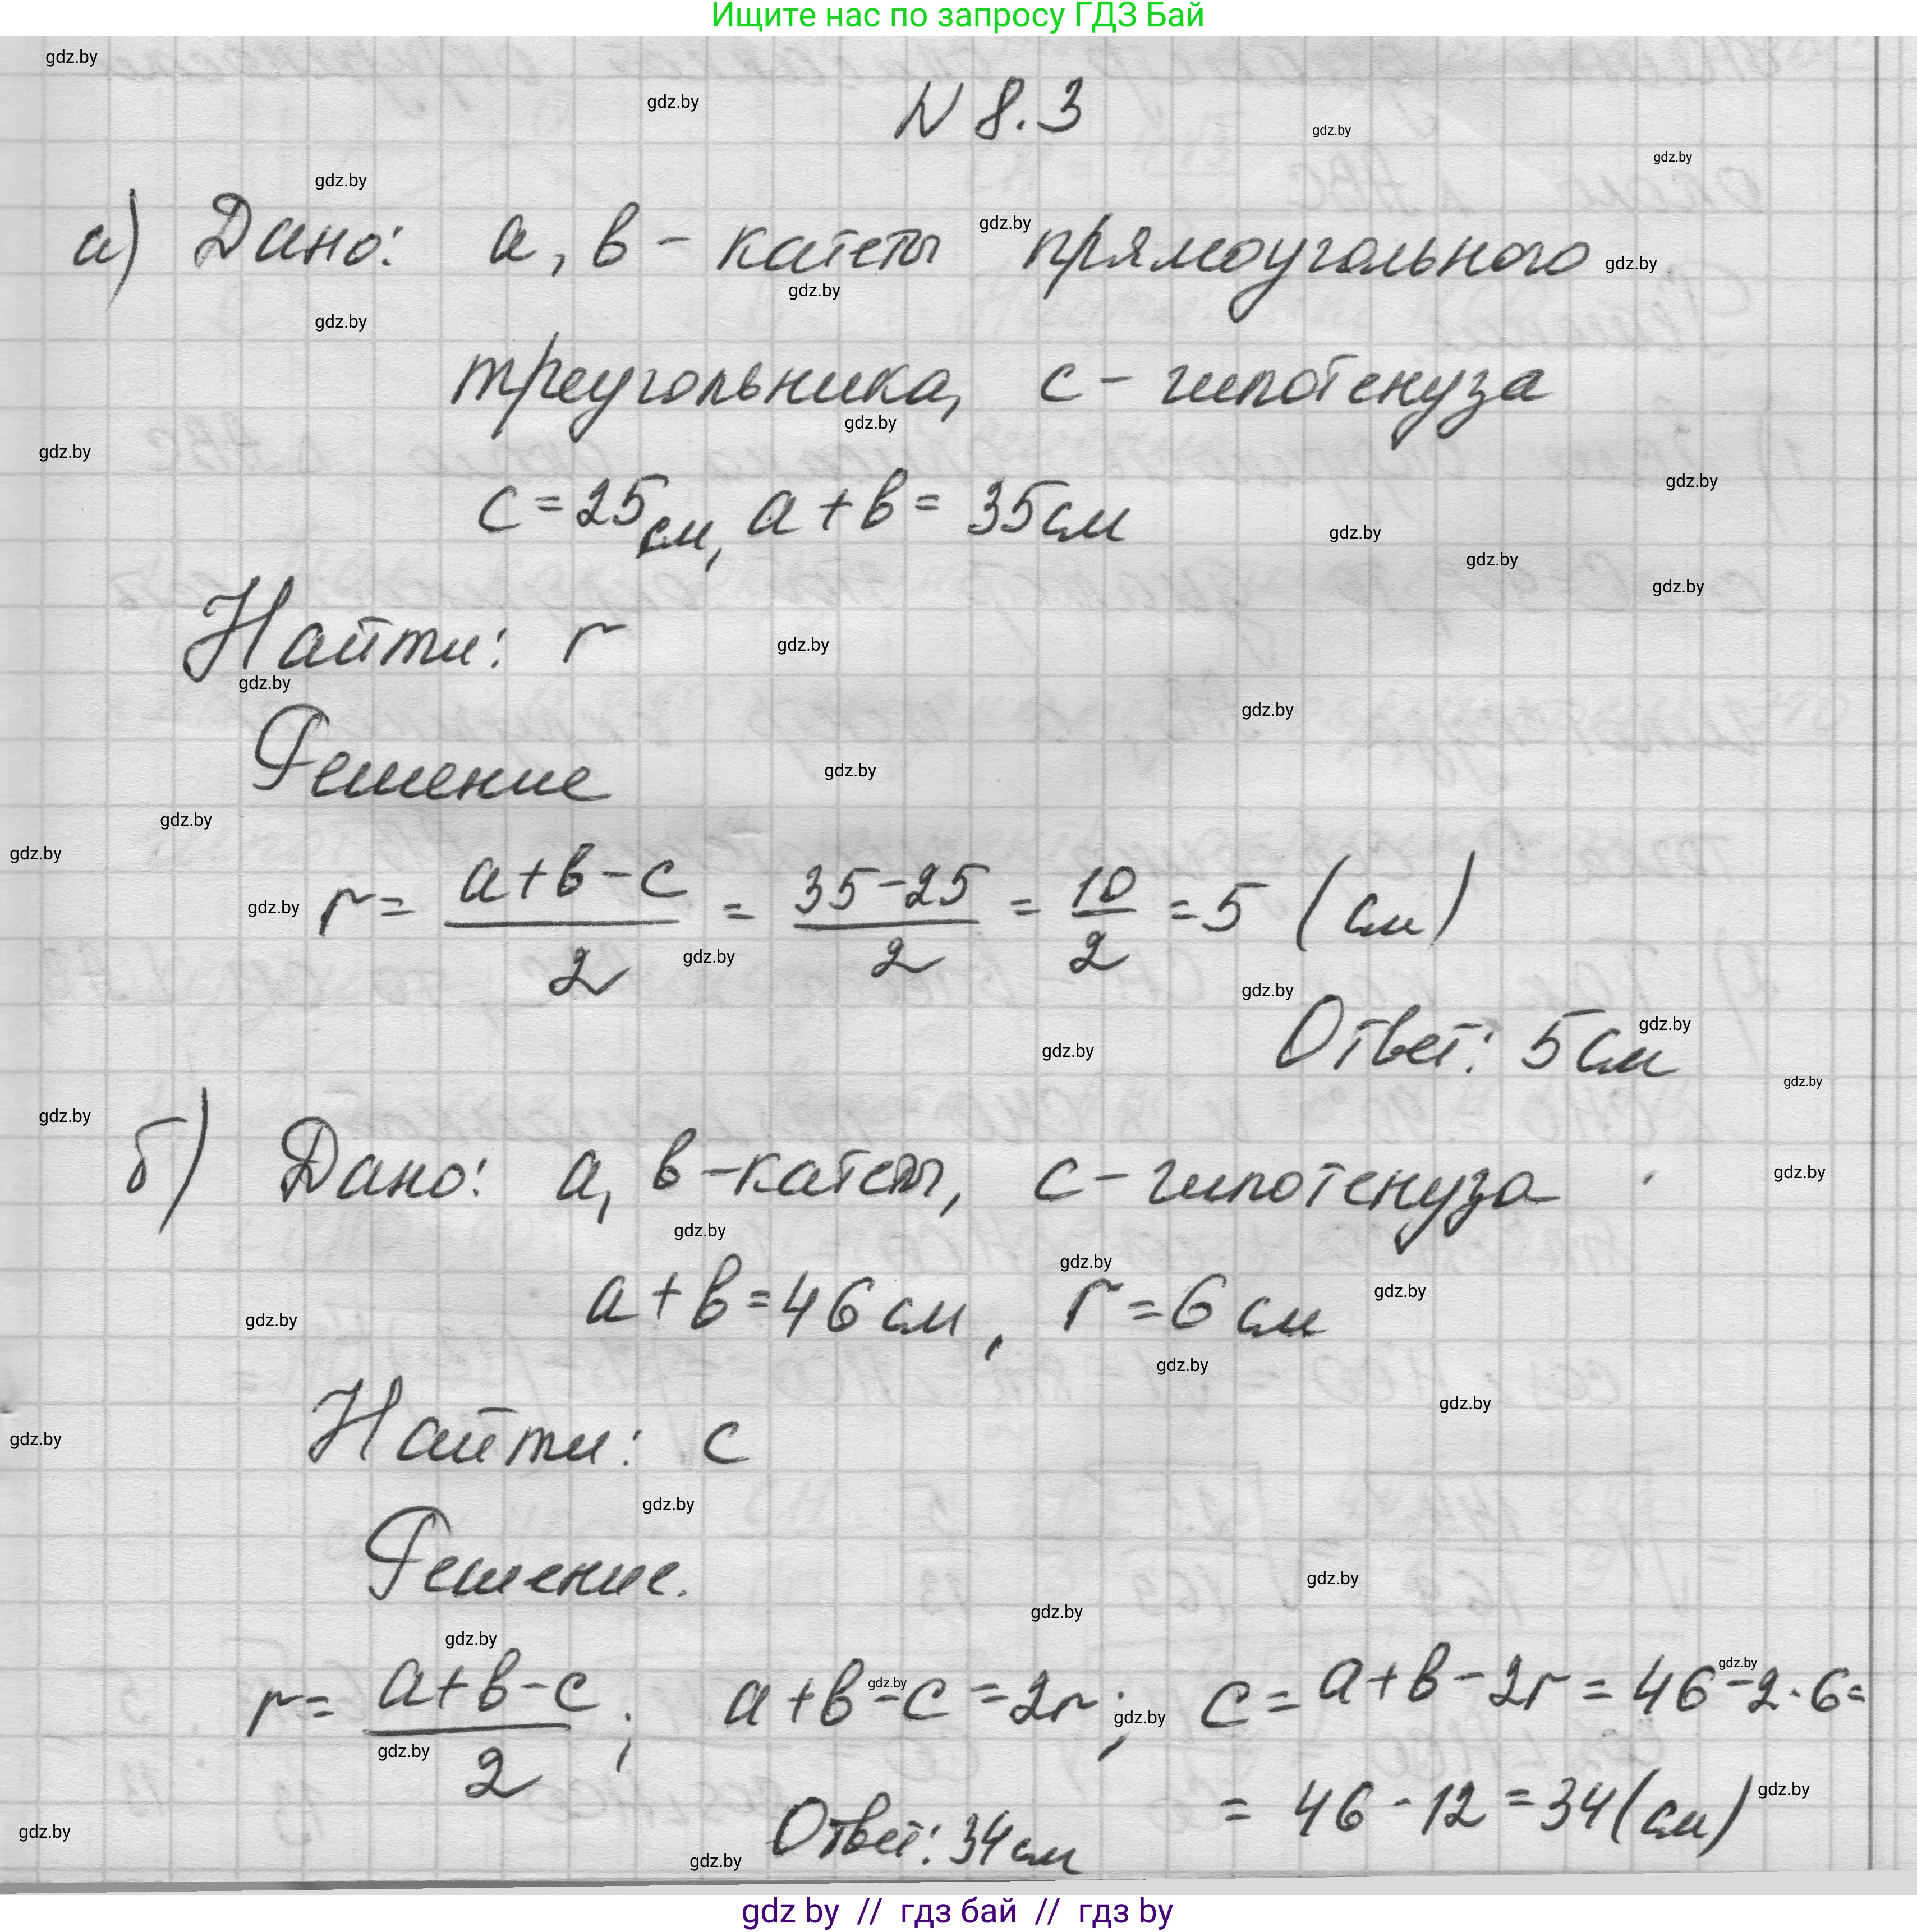 Ищите нас по запросу ГДЗ Бай
N 8.3
а) Дано: a, в - катеты прямоугольного
треугольника, c - гипотенуза
c = 25 см, a + в = 35 см
Найти: r
Решение
r = (a + в - c)/2 = (35 - 25)/2 = 10/2 = 5 (см)
Ответ: 5 см
б) Дано: a, в - катеты, c - гипотенуза
a + в = 46 см, r = 6 см
Найти: c
Решение.
r = (a + в - c)/2 ; a + в - c = 2r ; c = a + в - 2r = 46 - 2 · 6 =
= 46 - 12 = 34 (см)
Ответ: 34 см
gdz by // гдз бай // гдз by